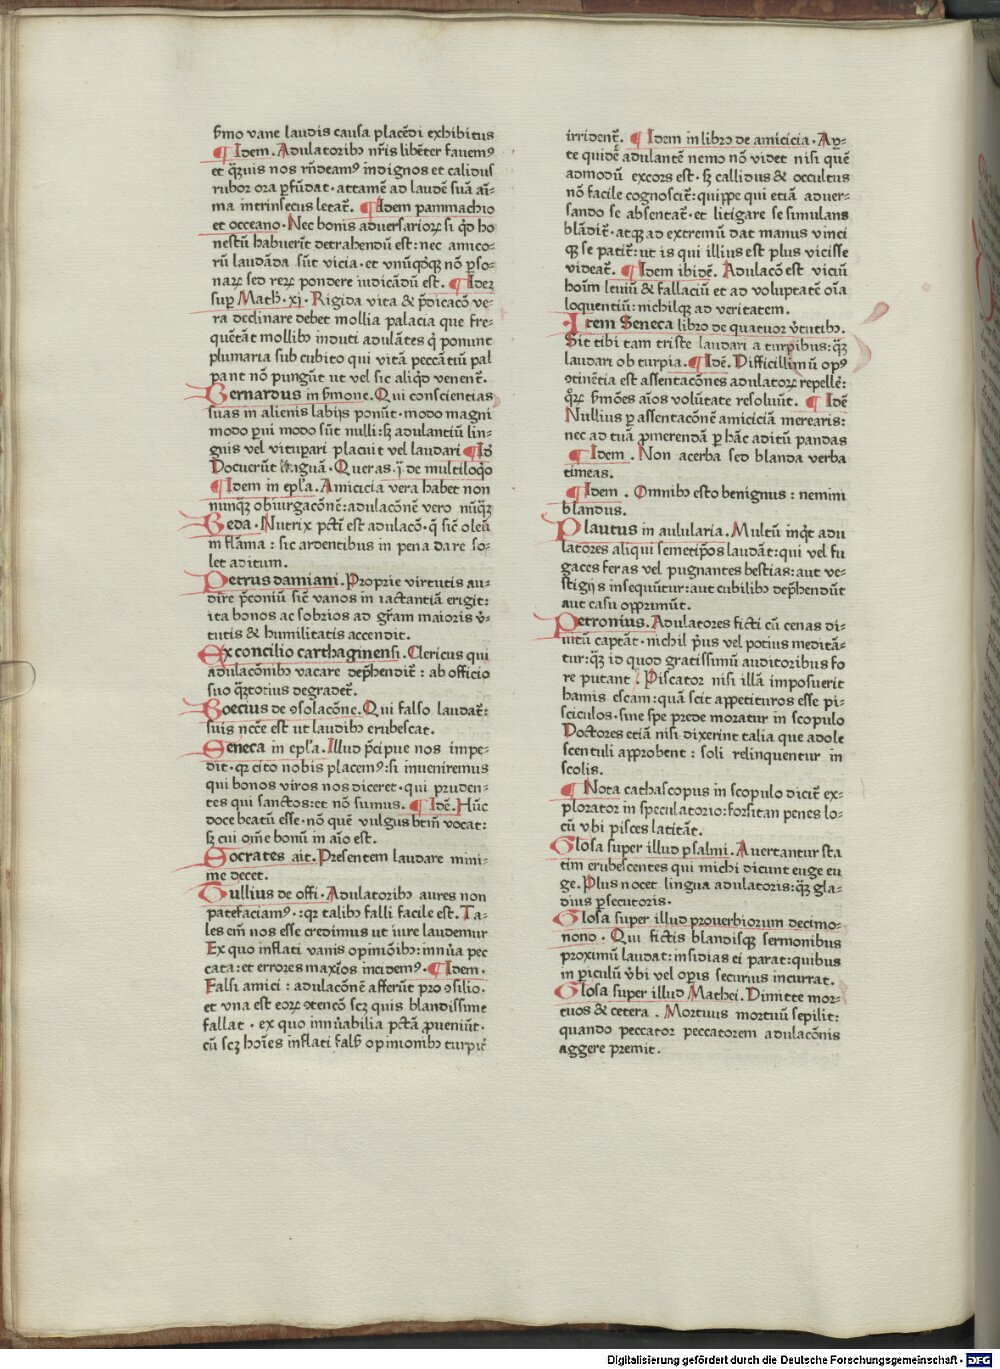 ẜmo vane laudis causa placēdi exhibitus
¶ Idem. Adulatoribꝫ nr̄is libēter fauemꝰ
et q̄ꝫuis nos rn̄deamꝰ indignos et calidus
rubor ora ꝑfūdat · attamē ad laudē suā aī-
ma intrinsecus letat᷑. ¶ Idem pammachio
et occeano · Nec bonis aduersarioꝝ si qd̄ ho
nestū habuerīt detrahendū est: nec amico-
rū laudāda sūt vicia · et vnūqd̄qꝫ nō ꝑso-
naꝝ sed reꝝ pondere iudicādū est. ¶ Ideꝫ
suꝑ Math̄ · xj · Rigida vita & p̄dicacō ve-
ra declinare debet mollia palacia que fre-
quētāt mollibꝫ induti adulātes q̇ ponunt
plumaria sub cubito qui vitā peccātiū pal
pant nō pungūt ut vel sic aliqd̄ venent᷑.
Bernardus in ẜmone. Qui conscientias
suas in alienis labijs ponūt · modo magni
modo ꝑui modo sūt nulli: sꝫ adulantiū lin-
guis vel vituꝑari placuit vel laudari ¶ Id̄
Docuerūt linguā · Queras · j̄ · de multiloq̇o
¶ Idem in epl̄a. Amicicia vera habet non
nunq̄ꝫ obiurgacōnē: adulacōnē vero nūq̄ꝫ
Beda · Nutrix pctī est adulacō · q̇ sic̄ oleū
in flāma : sic ardentibus in pena dare so-
let aditum.
Petrus damiani. Proprie virtutis au-
dire p̄coniū sic̄ vanos in iactantiā erigit:
ita bonos ac sobrios ad gr̄am maioris v̄-
tutis & humilitatis accendit.
Ex concilio carthaginensi. Clericus qui
adulacōnibꝫ vacare dep̄hendit᷑ : ab officio
suo q̄ꝫtotius degradet᷑.
Boecius de ꝯsolacōne. Qui falso laudat᷑:
suis ncc̄e est ut laudibꝫ erubescat.
Seneca in epl̄a. Illud p̄cipue nos impe-
dit · qꝛ cito nobis placemꝰ: si inueniremus
qui bonos viros nos diceret · qui pruden-
tes qui sanctos: et nō sumus. ¶ Idē. Hūc
doce beatū esse · nō quē vulgus btm̄ vocat:
sꝫ cui om̄e bonū in aīo est.
Socrates ait. Presentem laudare mini-
me decet.
Tullius de offi · Adulatoribꝫ aures non
patefaciamꝰ · : qꝛ talibꝫ falli facile est. Ta-
les em̄ nos esse credimus ut iure laudemur
Ex quo inflati vanis opinōibꝫ: innūa pec
cata: et errores maxīos incidemꝰ. ¶ Idem ·
Falsi amici : adulacōnē afferūt pro ꝯsilio.
et vna est eoꝝ ꝯtencō scꝫ quis blandissime
fallat · ex quo innūabilia pctā ꝓueniūt ·
cū scꝫ hoīes inflati falß opinionibꝫ turpit᷑
irrident᷑. ¶ Idem in libro de amicicia. Aꝑ-
te quidē adulantē nemo nō videt nisi quē
admodū excors est · sꝫ callidus & occultus
nō facile cognoscit᷑: quippe qui etiā aduer-
sando se absentat᷑ · et litigare se simulans
blādit᷑ · atqꝫ ad extremū dat manus vinci
qꝫ se patit᷑: ut is qui illius est plus vicisse
videat᷑. ¶ Idem ibidē. Adulacō est viciū
hoīm leuiū & fallaciū et ad voluptatē oīa
loquentiū: nichilqꝫ ad veritatem.
Item Seneca libro de quatuor v̄tutibꝫ.
Sit tibi tam triste laudari a turpibus: q̄ꝫ
laudari ob turpia. ¶ Idē. Difficillimū opꝰ
ꝯtinētia est assentacōnes adulatoꝝ repellē:
qꝝ ẜmōes aīos volūtate resoluūt. ¶ Idē
Nullius ꝑ assentacōnē amiciciā merearis:
nec ad tuā ꝓmerendā ꝑ hāc aditū pandas
¶ Idem. Non acerba sed blanda verba
timeas.
¶ Idem. Omnibꝫ esto benignus : nemini
blandus.
Plautus in aulularia. Multū inqt̄ adu
latores aliqui semetip̄os laudāt: qui vel fu
gaces feras vel pugnantes bestias: aut ve-
stigijs insequūtur: aut cubilibꝫ dep̄hendūt
aut casu opprimūt.
Petronius. Adulatores ficti cū cenas di-
uitū captāt · nichil pͥus vel potius meditā-
tur: q̄ꝫ id quod gratissimū auditoribus fo
re putant. Piscator nisi illā imposuerit
hamis escam: quā scit appetituros esse pi-
sciculos · sine spe prede moratur in scopulo
Doctores etiā nisi dixerint talia que adole
scentuli approbent : soli relinquentur in
scolis.
¶ Nota cathascopus in scopulo dicit᷑ ex-
plorator in speculatorio: forsitan penes lo-
cū vbi pisces latitāt.
Glosa super illud psalmi. Auertantur sta
tim erubescentes qui michi dicunt euge eu
ge. Plus nocet lingua adulatoris: q̄ꝫ gla-
dius ꝑsecutoris.
Glosa super illud prouerbiorum decimo-
nono · Qui fictis blandisqꝫ sermonibus
proximū laudat: insidias ei parat: quibus
in ꝑiculū v̄bi vel oꝑis securius incurrat.
Glosa super illud Mathei. Dimitte mor-
tuos & cetera. Mortuus mortuū sepilit:
quando peccator peccatorem adulacōnis
aggere premit.
Digitalisierung gefördert durch die Deutsche Forschungsgemeinschaft - DFG